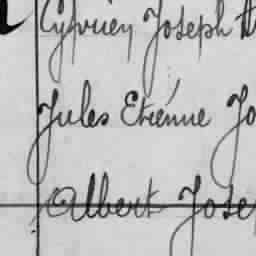 Cyprien Joseph
Jules Etienne Jo
Albert Jose